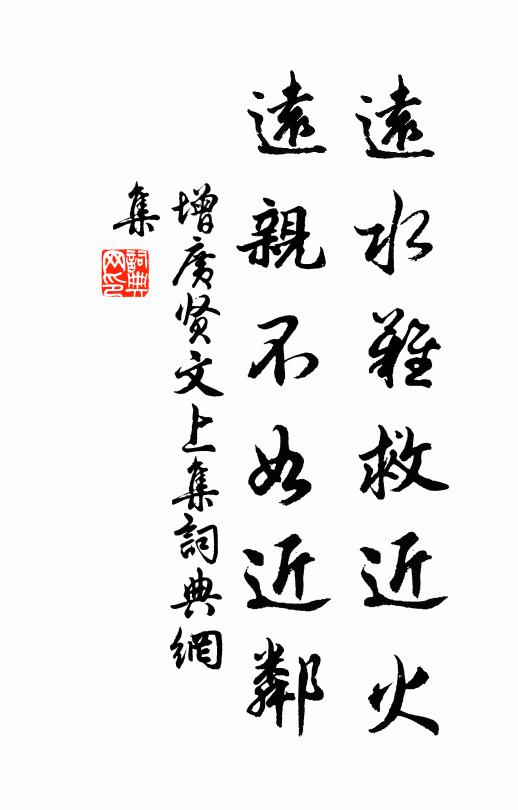 遠水難救近火
遠親不如近鄰
增廣贤文上集詞典網
集
詞典
网印